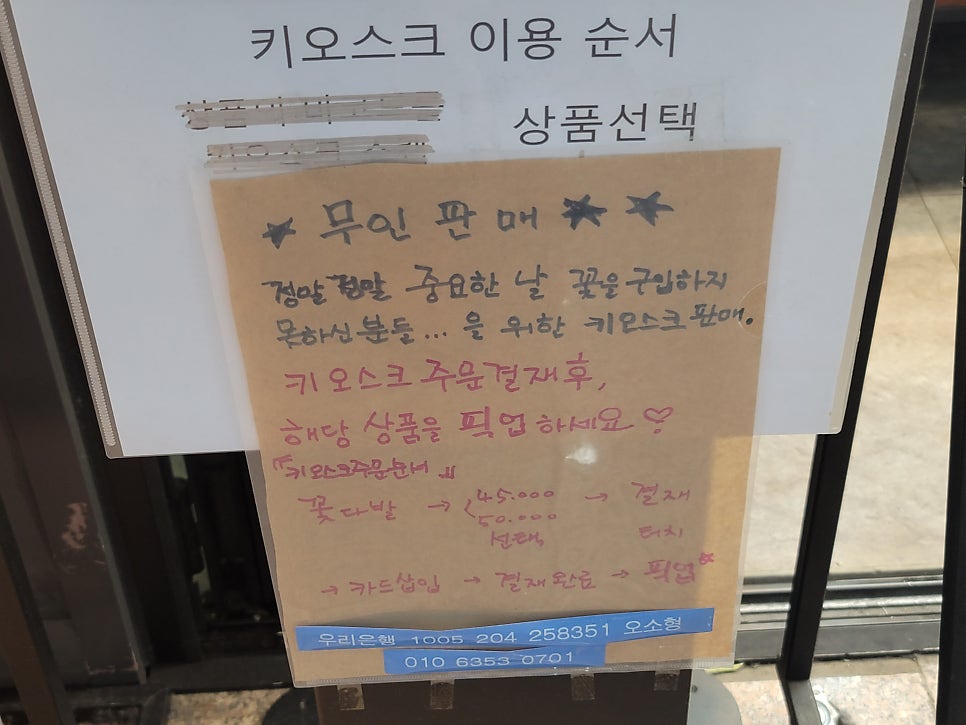 키오스크 이용 순서
상품선택
★ 무인 판매 ★ ★
정말 정말 중요한 날 꽃을 구입하지
못하신 분들... 을 위한 키오스크 판매.
키오스크 주문결재후,
해당 상품을 픽업하세요 ♡
『키오스크주문순서』
꽃다발 → 45.000 → 결재
50.000
선택 터치
→ 카드삽입 → 결재완료 → 픽업☆
우리은행 1005 204 258351 오소형
010 6353 0701